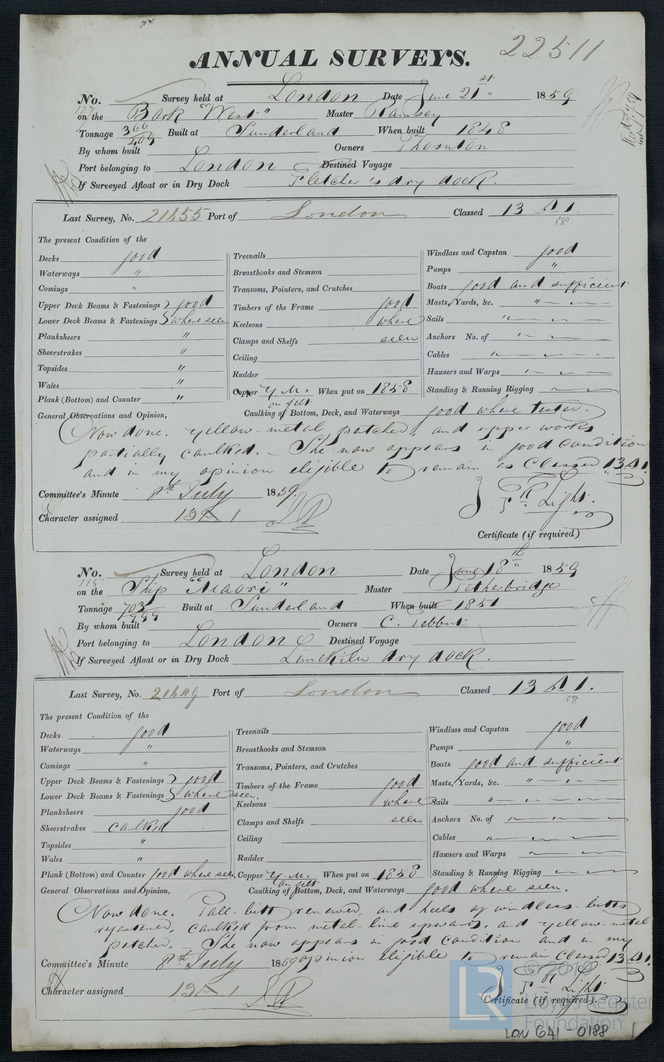 22511
ANNUAL SURVEYS.
No. Survey held at London Date June 21st 1859
on the Bark "West" Master Ramsey
Tonnage 366 Built at Sunderland When built 1848
By whom built Owners Thornton
Port belonging to London Destined Voyage
If Surveyed Afloat or in Dry Dock Fletcher's dry dock.
Last Survey, No. 21455 Port of London Classed 13 A 1.
58
The present Condition of the
Decks good Treenails Windlass and Capstan good
Waterways " Breasthooks and Stemson Pumps "
Comings " Transoms, Pointers, and Crutches Boats good and sufficient
Upper Deck Beams & Fastenings good Timbers of the Frame good Masts, Yards, &c. "
Lower Deck Beams & Fastenings where seen Keelsons where Sails "
Planksheers " Clamps and Shelfs seen Anchors No. of "
Sheerstrakes " Ceiling Cables "
Topsides " Rudder Hawsers and Warps "
Wales " Copper Y.M. on felt When put on 1858 Standing & Running Rigging
Plank (Bottom) and Counter "
General Observations and Opinion, Caulking of Bottom, Deck, and Waterways good where tested.
Now done. Yellow-metal patched, and upper works
partially caulked. - She now appears in good condition
and in my opinion eligible to remain as Classed 13 A 1.
Committee's Minute 8th July 1859
Character assigned 13 A 1
Light.
Certificate (if required)
No. Survey held at London Date June 18th 1859
on the Ship "Maori" Master Petherbridge
Tonnage 703 Built at Sunderland When built 1851
By whom built Owners C. Tebbut
Port belonging to London Destined Voyage
If Surveyed Afloat or in Dry Dock Limekiln dry dock.
Last Survey, No. Port of London Classed 13 A 1.
58
The present Condition of the
Decks good Treenails Windlass and Capstan good
Waterways " Breasthooks and Stemson Pumps "
Comings " Transoms, Pointers, and Crutches Boats good and sufficient
Upper Deck Beams & Fastenings good Timbers of the Frame good Masts, Yards, &c. "
Lower Deck Beams & Fastenings where seen. Keelsons where Sails "
Planksheers good Clamps and Shelfs seen Anchors No. of "
Sheerstrakes caulked Ceiling Cables "
Topsides " Rudder Hawsers and Warps "
Wales " Copper Y.M. on felt When put on 1858 Standing & Running Rigging
Plank (Bottom) and Counter good where seen
General Observations and Opinion, Caulking of Bottom, Deck, and Waterways good where seen.
Now done. Pall-bitt renewed, and heels of windlass bitts
refastened, caulked from metal line upwards, and yellow-metal
patched. She now appears in good condition and in my
opinion eligible to remain Classed 13 A 1.
Committee's Minute 8th July 1859
Character assigned 13 A 1
Light
Certificate (if required).
LR © 2019
Lloyd's Register
Foundation
LON 641 - 0188